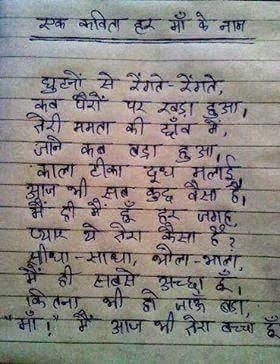 एक कविता हर माँ के नाम
घुटनों से रेंगते-रेंगते,
कब पैरों पर खड़ा हुआ,
तेरी ममता की छाँव में,
जाने कब बड़ा हुआ,
काला टीका दुध मलाई,
आज भी सब कुछ वैसा है,
मैं ही मैं हूँ हर जगह,
प्यार ये तेरा कैसा है?
सीधा-साधा, भोला-भाला,
मैं ही सबसे अच्छा हूँ,
कितना भी हो जाऊ बड़ा,
"माँ!" मैं आज भी तेरा बच्चा हूँ